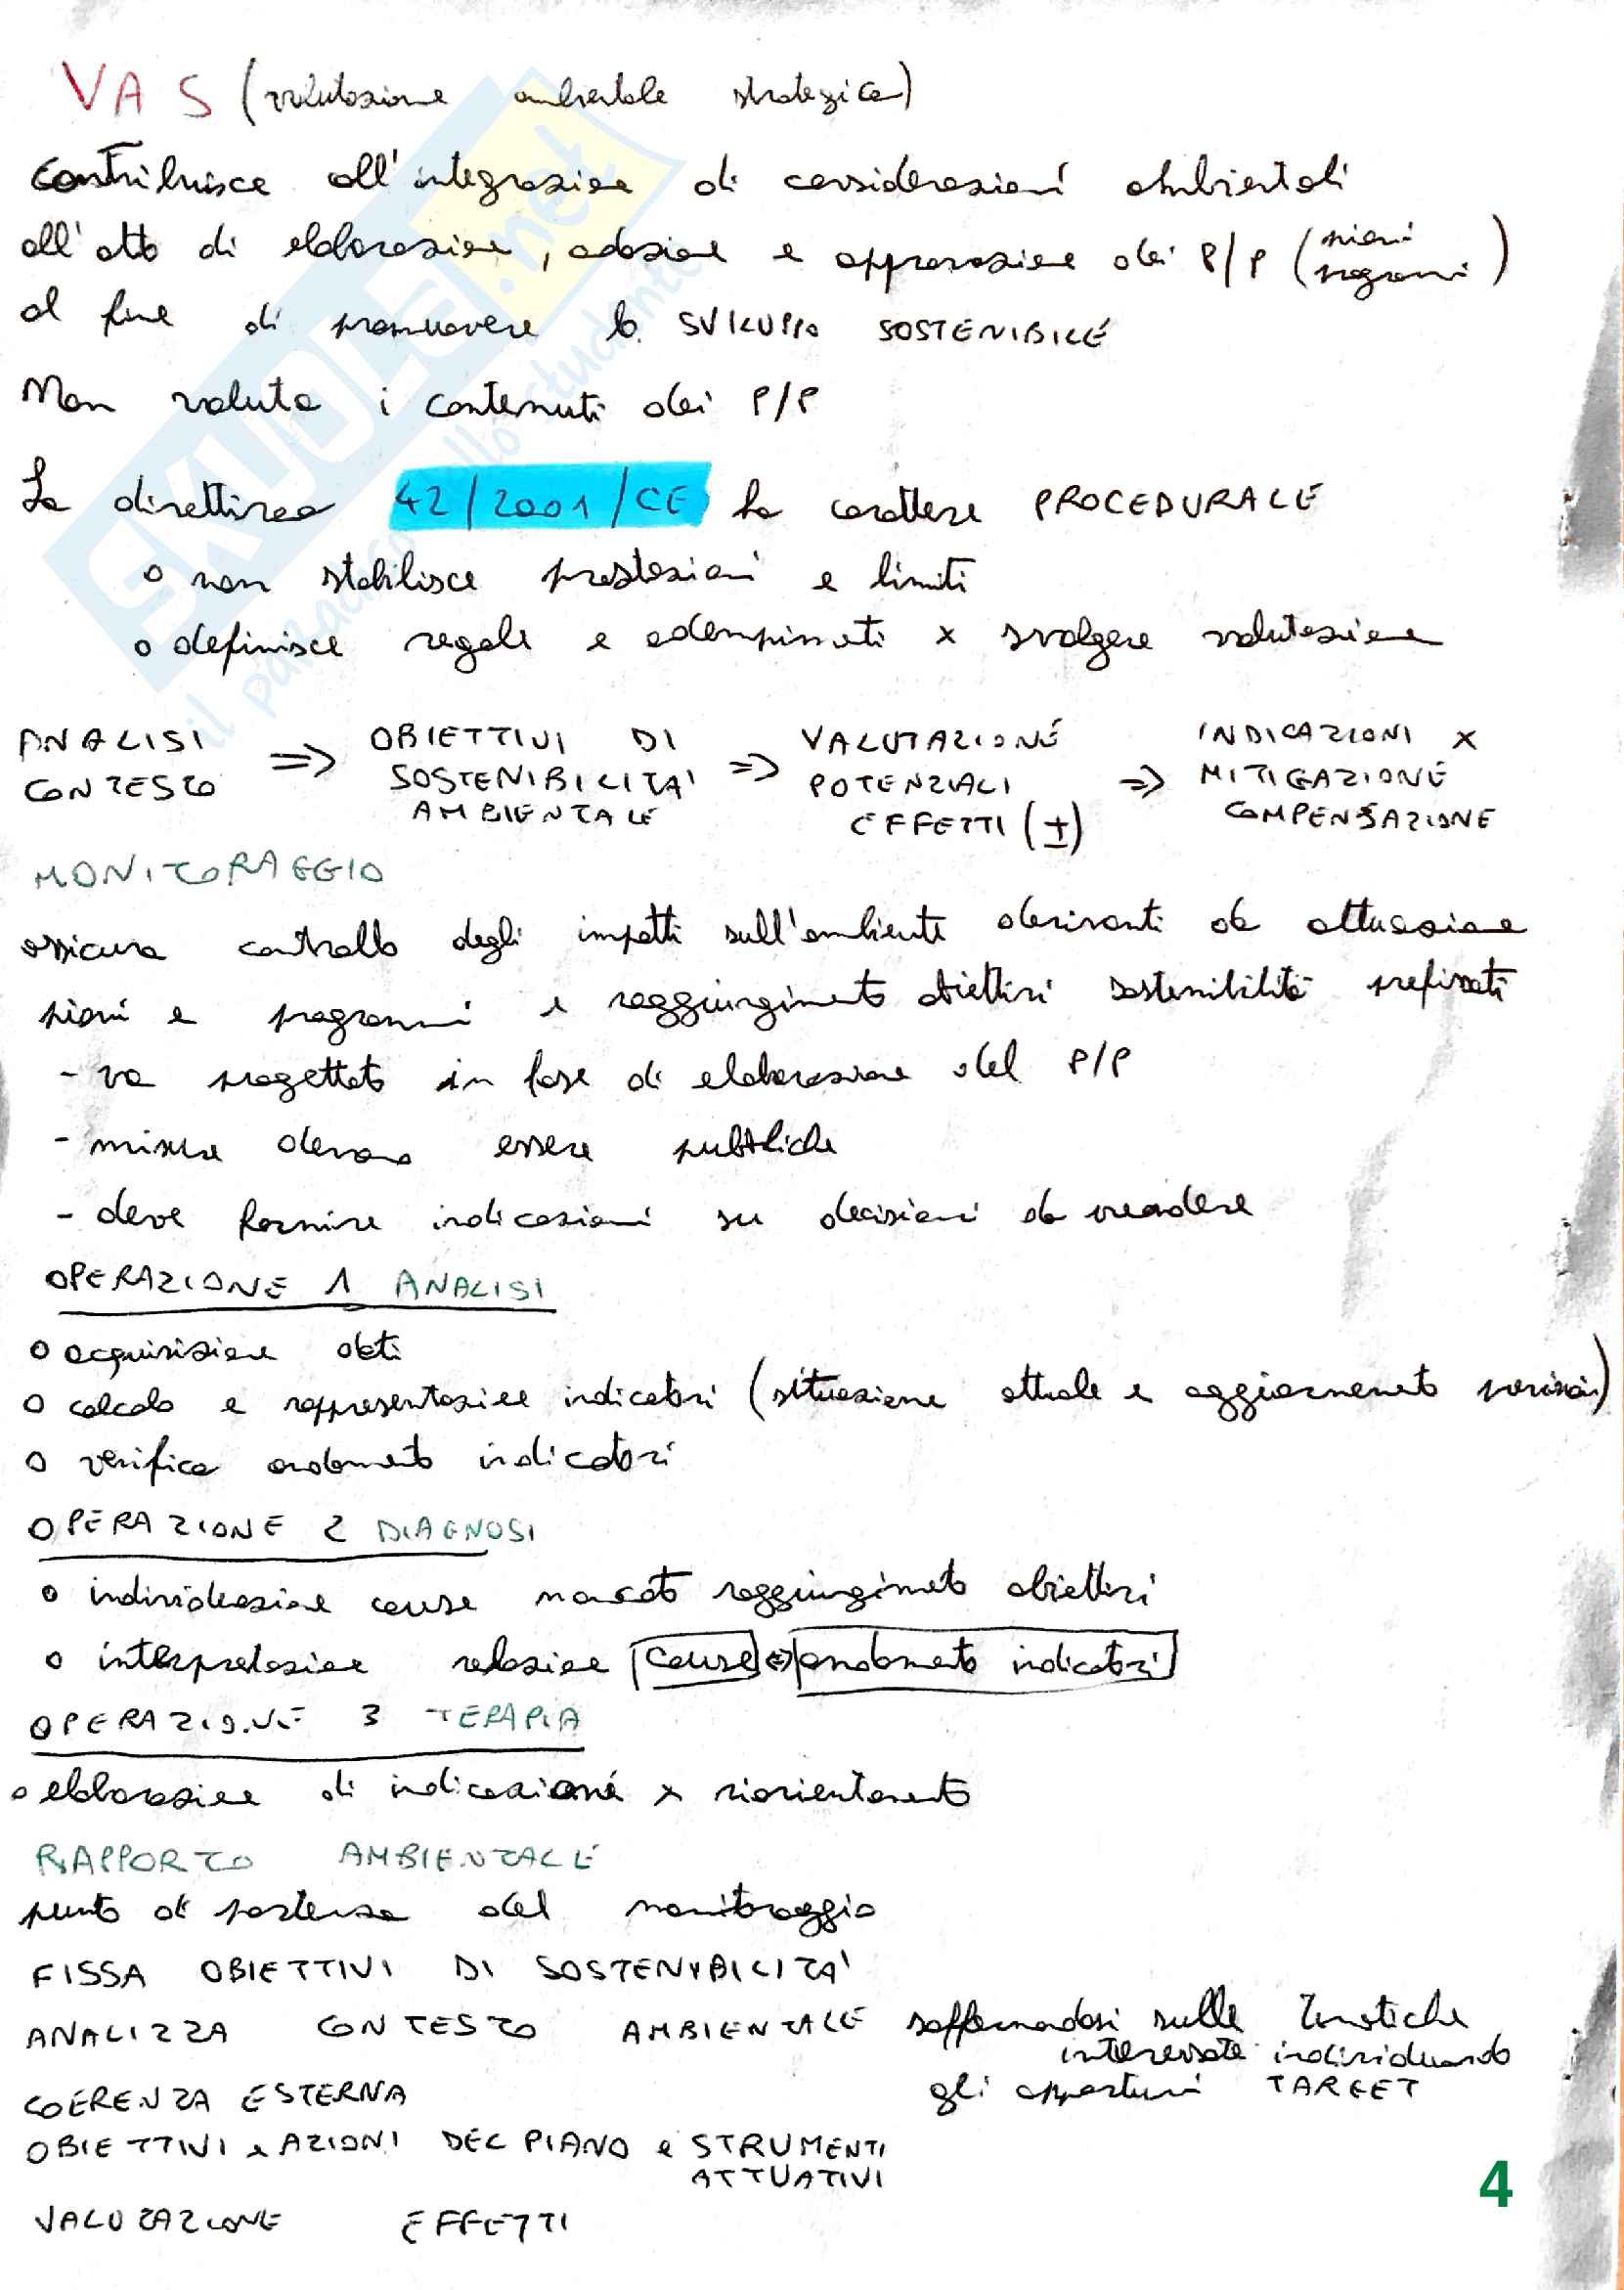 VAS (valutazione ambientale strategica)
contribuisce all'integrazione di considerazioni ambientali
all'atto di elaborazione, adozione e approvazione dei P/P (piani programmi)
al fine di promuovere lo SVILUPPO SOSTENIBILE
Non valuta i contenuti dei P/P
La direttiva 42/2001/CE ha carattere PROCEDURALE
o non stabilisce prestazioni e limiti
o definisce regole e adempimenti x svolgere valutazione
ANALISI CONTESTO => OBIETTIVI DI SOSTENIBILITA' AMBIENTALE => VALUTAZIONE POTENZIALI EFFETTI (±) => INDICAZIONI x MITIGAZIONE COMPENSAZIONE
MONITORAGGIO
assicura controllo degli impatti sull'ambiente derivanti da attuazione
piani e programmi e raggiungimento obiettivi sostenibilità prefissati
- va progettato in fase di elaborazione del P/P
- misure devono essere pubbliche
- deve fornire indicazioni su decisioni da prendere
OPERAZIONE 1 ANALISI
o acquisizione dati
o calcolo e rappresentazione indicatori (situazione attuale e aggiornamento previsioni)
o verifica andamento indicatori
OPERAZIONE 2 DIAGNOSI
o individuazione cause mancato raggiungimento obiettivi
o interpretazione relazione cause <=> andamento indicatori
OPERAZIONE 3 TERAPIA
o elaborazione di indicazioni x riorientamento
RAPPORTO AMBIENTALE
punto di partenza del monitoraggio
FISSA OBIETTIVI DI SOSTENIBILITA'
ANALIZZA CONTESTO AMBIENTALE soffermandosi sulle tematiche
interessate individuando
gli opportuni TARGET
COERENZA ESTERNA
OBIETTIVI e AZIONI DEL PIANO e STRUMENTI
ATTUATIVI
VALUTAZIONE EFFETTI
4
SKUOLA.net
il paradiso dello studente